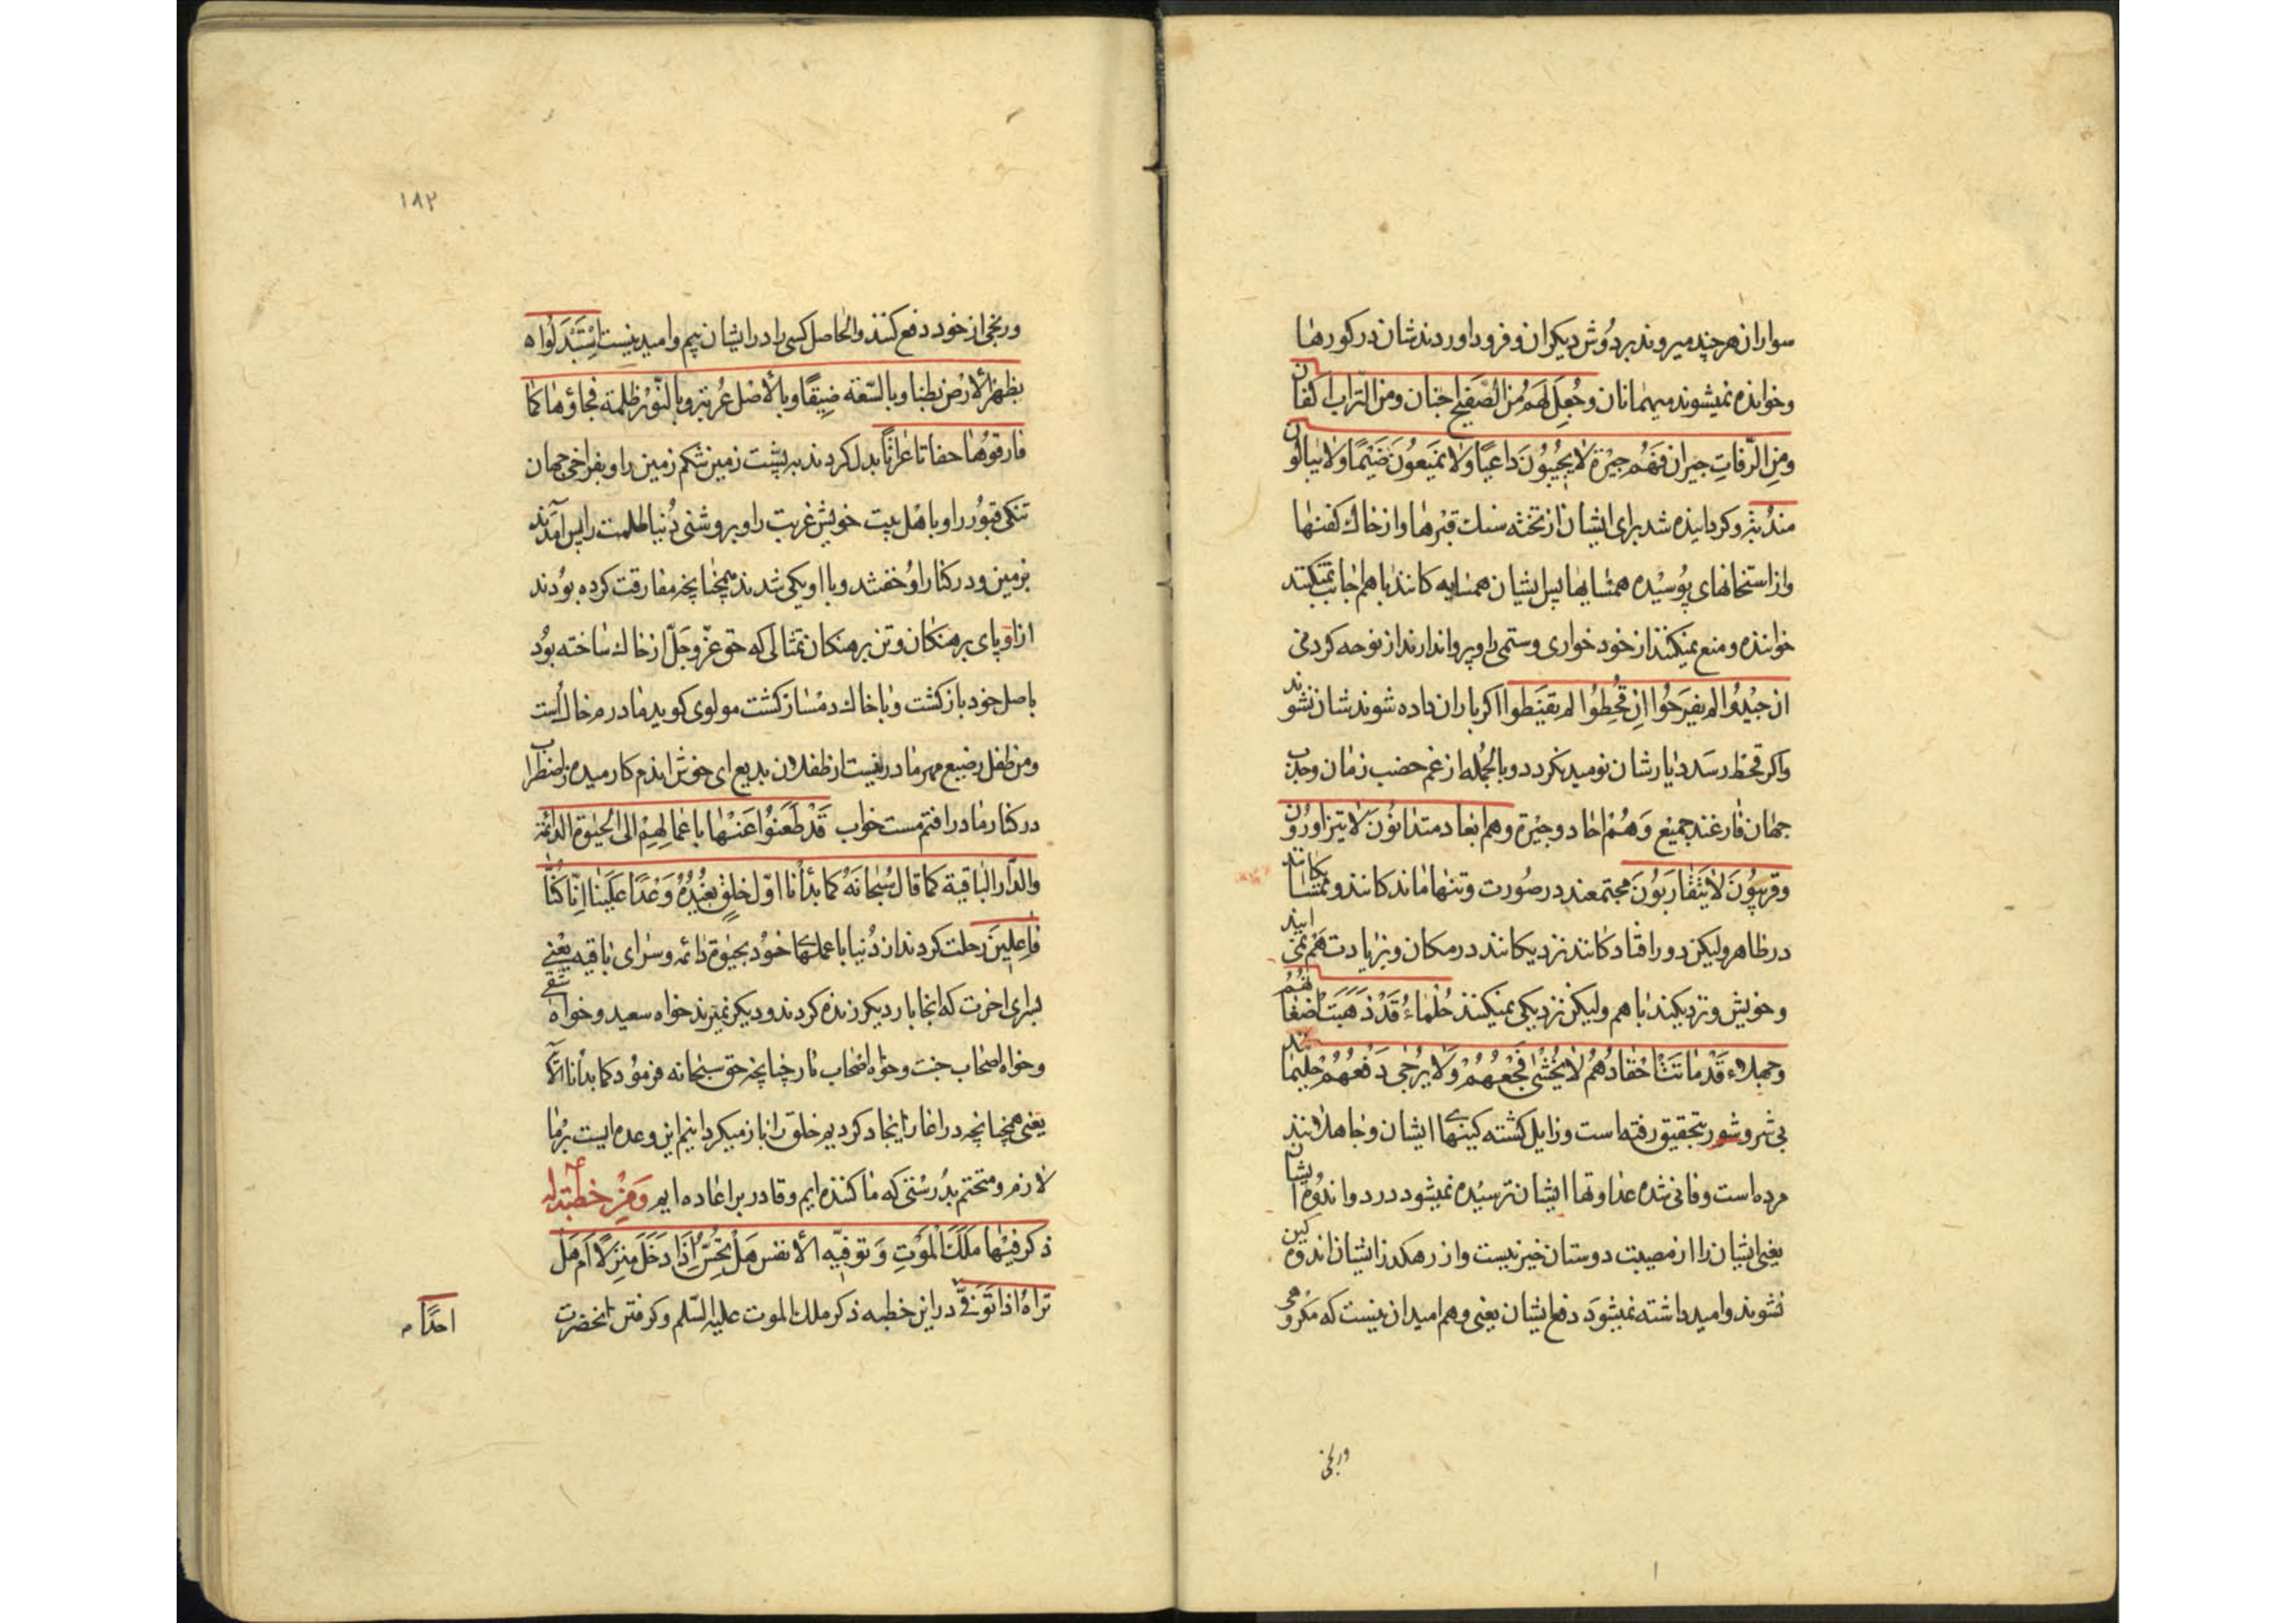 سواران هرچند میروند بردوش دیکران و فرود اوردندشان در کورها
وخوانده نمیشوند میهمانان وجُعِلَ لَهُم مُنَ الصَّفیحِ اجنان ومن التّراب اکفان
ومِنِ الرّفاتِ جیران فَهُم جیْرَة لا یُجیُبوُنَ داعیًا ولا یَمنَعوُنَ ضَیْمًا ولا یبالون
مندُبَة وکردانیده شد برای ایشان از تخته سنك قبرها و از خاك کفنها
واز استخانهای پوُسیْده همسایها پس ایشان همسایه کانند با هم اجابت نمیکنند
خواننده و منع نمیکنند از خود خواری وستمی را و پروا ندارند از نوحه کردنی
ان جیْدوُا لم یفرَحُوا اِن قُحِطوُا لم یقنَطوا اکر باران داده شوند شان نشوند
واکر قحط رسد دیارشان نومید نکردد وبالجُمله از غم خضب زمان وجدب
جهان فارغند جمیع وَهُم احاد وجیْرة وهم ابعاد متدانوُن لا یتزاورُون
وقریبُونَ لا یَتَقٰارَبوُنَ مجتمعند در صوُرت وتنها مانده کانند و همسایکانند
در ظاهر ولیکن دور افتاده کانند نزدیکانند در مکان و بزیارت هم نمی ایند
وخویش ونزدیکند با هم ولیکن نزدیکی نمیکنند حُلَماءُ قَدْ ذَهَبَت اَضغانُهُم
وجهلاء قَدْ مٰاتَت اَحْقادُهُم لا یُخْشٰی فَجْعُهُمْ وَلا یُرْجٰی دَفْعُهُم حلیمانند
بی شر وشور بتحقیق رفته است و زایل کشته کینهای ایشان و جاهلانند
مرده است وفانی شده عداوتها ایشان ترسیْده نمیشود درد و اندوُه ایشان
یعنی ایشان را از مصیبت دوستان خبر نیست واز رهکذر ایشان اندوه کین
نشوند وامید داشته نمیشوَد دفع ایشان یعنی و هم امید ان نیست که مکروهی
ورنجی
۱۸۲
ورنجی از خود دفع کنند والحاصل کسی را در ایشان بیم و امید نیست اِسْتَبْدَلُواه
بظهْرِ الأرْض بطنا وبالسّعَة ضِیقًا وبالأصْل غُربَة وبالنّوُر ظلمة فجاؤها کما
فارقوُها حفاتا عُراتًا بدل کردند به پشت زمین شکم زمین را و بفراخی جهان
تنکی قبوُر را و باهْل بیت خویش غربت را و بروشنی دُنیا ظلمت را پس آمدند
بزمین و در کنار او خفتند و با او یکی شدند همچنانچه مفارقت کرده بوُدند
از او پای برهنکان وتن برهنکان تمثالی که حق عزّ وجَلّ از خاك ساخته بوُد
باصل خود بازکشت و با خاك دمساز کشت مولوی کوید مادرم خاك است
ومن طفل رضیع مهر مادر نیست از طفلان بدیع ای خوش اندم کارمیده ز اضطراب
در کنار مادر افتم مست خواب قَدْ ظَعَنوُا عَنْهٰا بِاعْمالِهِمْ الی الحیٰوة الدائمة
والدّار الباقیة کما قال سُبحانَهُ کما بدَأنا اوّل خلقٍ نعُیْدُهُ وَعْدًا عَلَیْنا اِنّا کُنّا
فاعلینَ رحلت کردند از دُنیا با عملهای خوُد بحیٰوة دائمه و سرای باقیه یعْنی
بسرای اخرت که انجا بار دیکر زنده کردند و دیکر نمیرند خواه سعید و خواه شقی
وخواه اصحاب جنت و خواه اصحاب نار چنانچه حق سبحانه فرموُد کما بدأنا الآیة
یعنی همچنانچه در اغاز ایجاد کردیم خلق را باز میکردانیم این وعده ایست بر ما
لازم و متحتم بدُرسْتی که ما کننده ایم و قادر بر اعاده ایم وَمِنْ خطبَة لهٌ ع
ذکر فیها مَلَكَ المَوْتِ وَتَوفیّه الأنفس هَلْ تُحِسُّ اِذَا دَخَلَ مَنزِلًا اَم هَل
تَراهُ اذا تَوَفّیٰ در این خطبه ذکر ملك الموت علیه السّلم وکرفتن انحضرت
احدًا